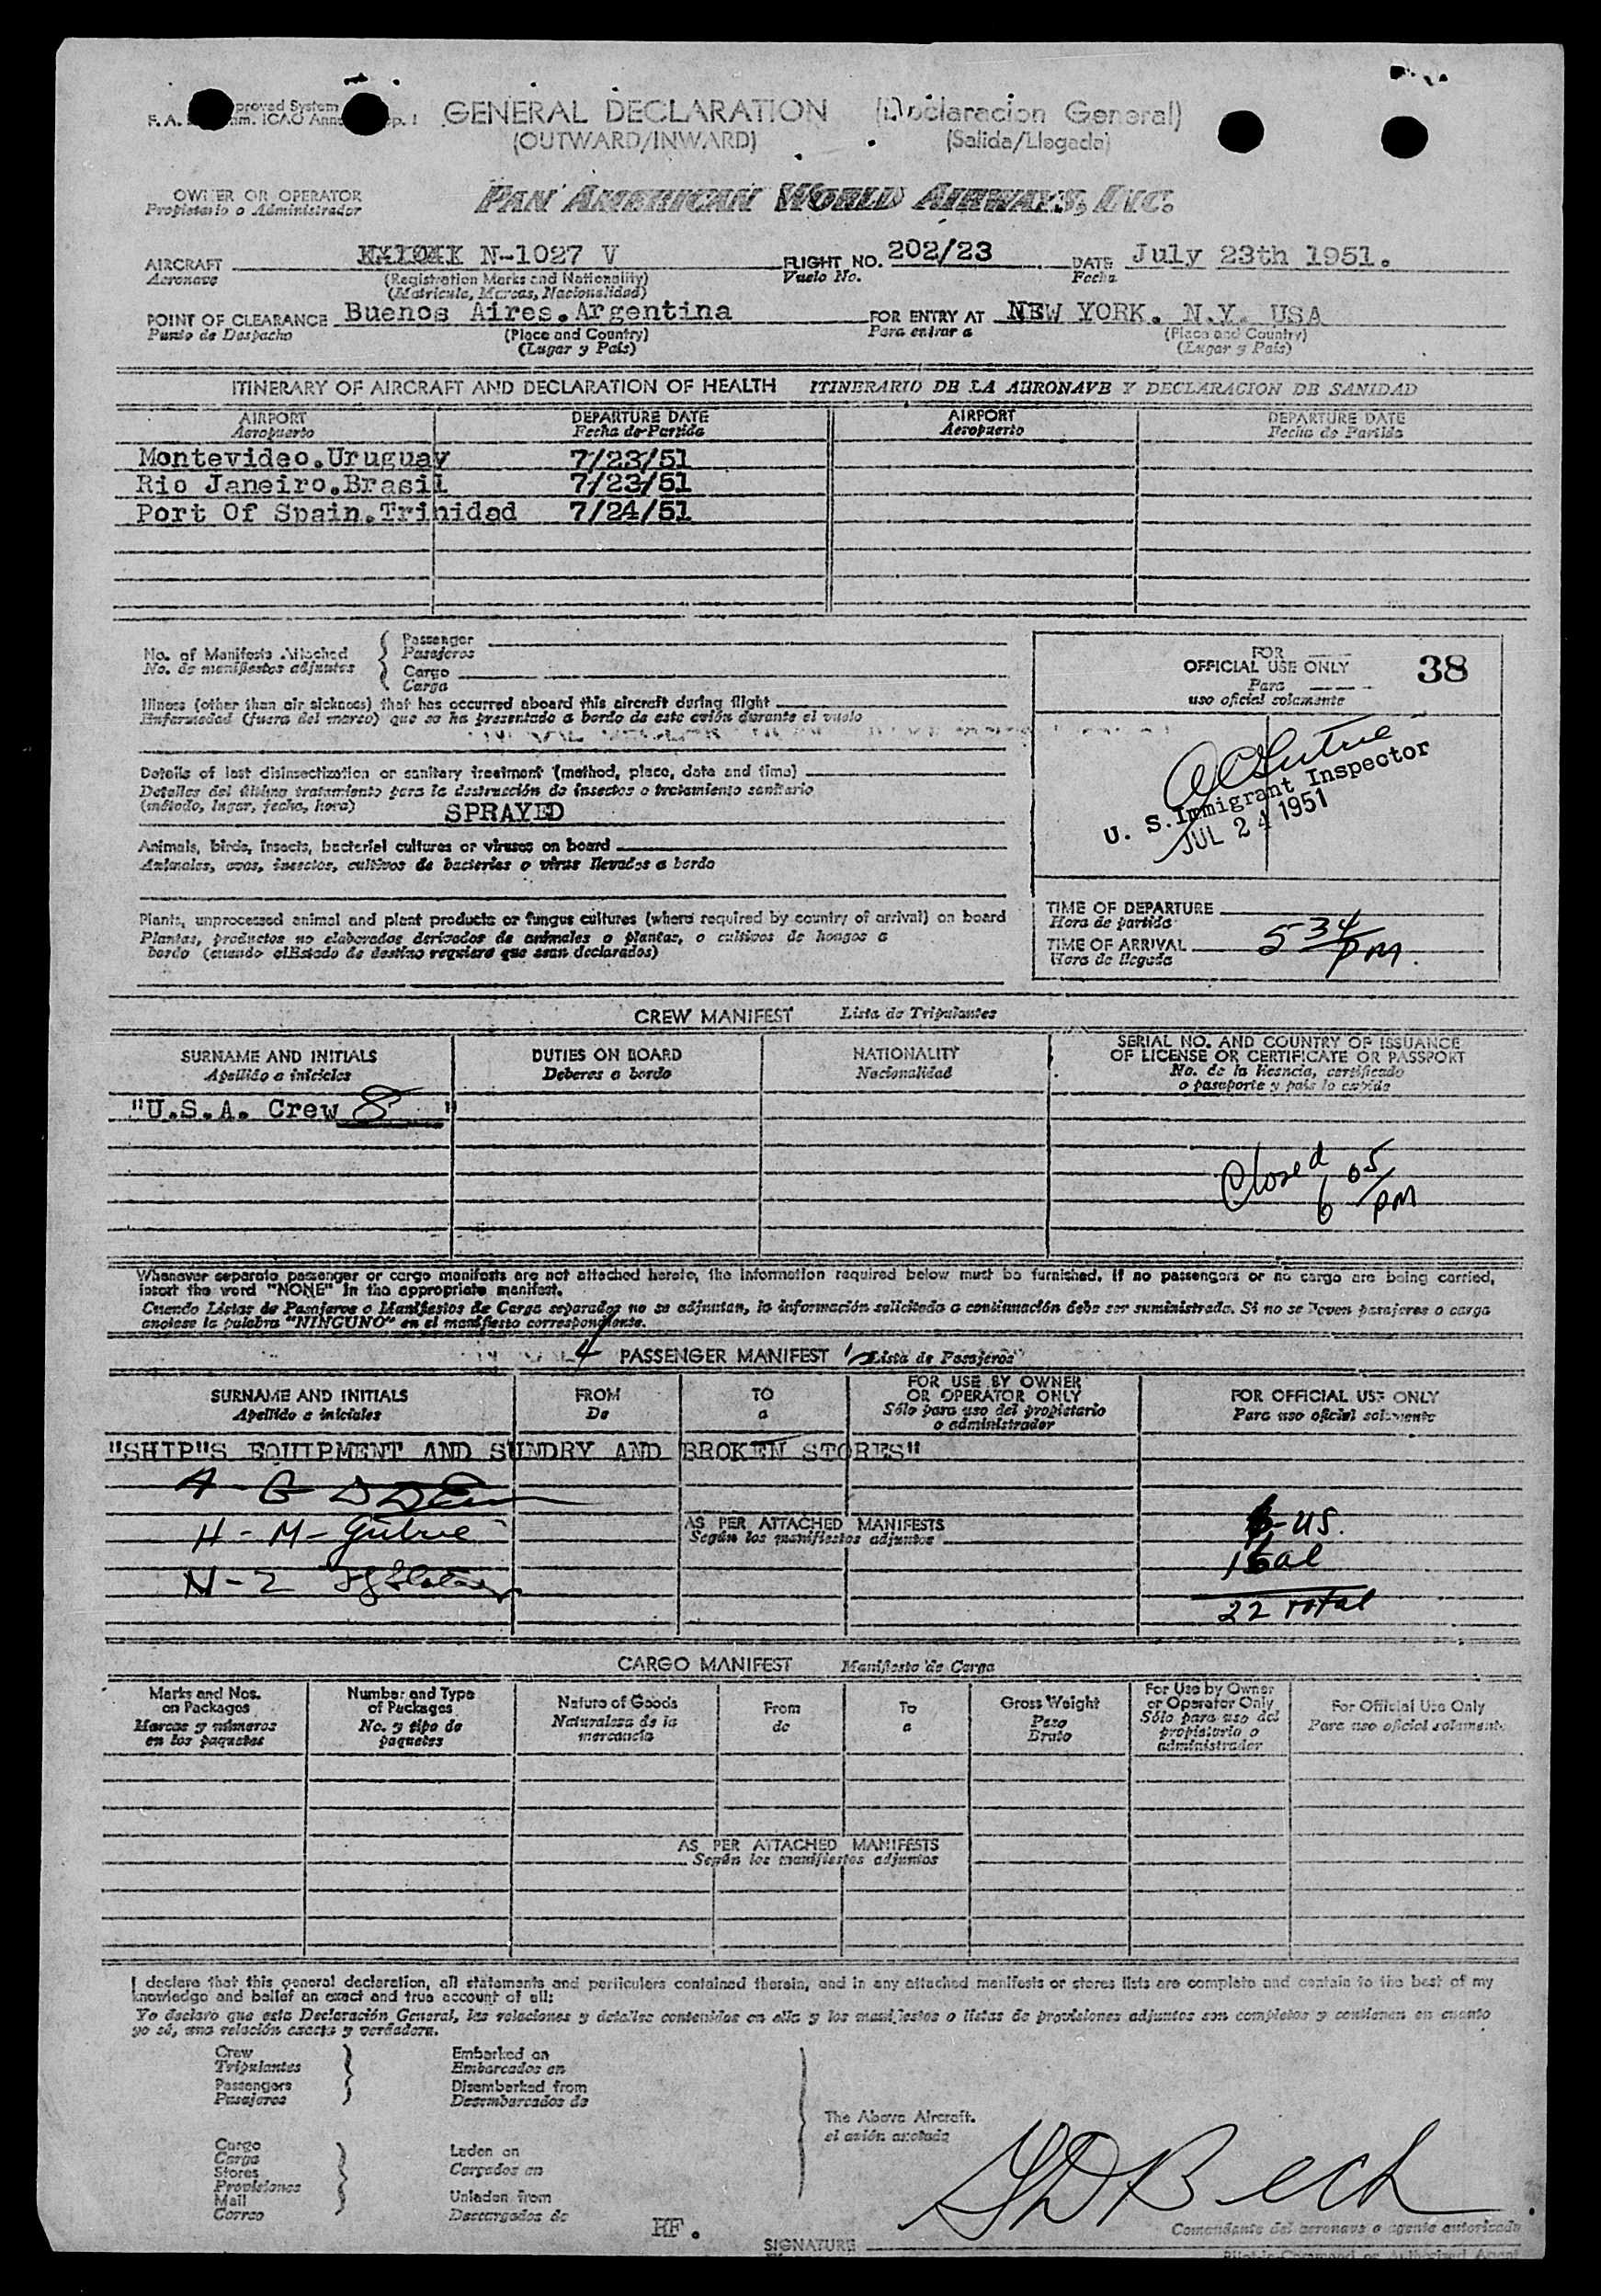 proved System
F. A.
GENERAL DECLARATION (Declaracion General)
(OUTWARD/INWARD) (Salida/Llegada)
OWNER OR OPERATOR
Propietario o Administrador
PAN AMERICAN WORLD AIRWAYS, INC.
AIRCRAFT N-1027 V FLIGHT NO. 202/23 DATE July 23th 1951.
Aeronave (Registration Marks and Nationality) Vuelo No. Fecha
(Matricula, Marcas, Nacionalidad)
POINT OF CLEARANCE Buenos Aires.Argentina FOR ENTRY AT NEW YORK. N.Y. USA
Punto de Despacho (Place and Country) Para entrar a (Place and Country)
(Lugar y País) (Lugar y País)
ITINERARY OF AIRCRAFT AND DECLARATION OF HEALTH ITINERARIO DE LA AERONAVE Y DECLARACION DE SANIDAD
AIRPORT DEPARTURE DATE AIRPORT DEPARTURE DATE
Aeropuerto Fecha de Partida Aeropuerto Fecha de Partida
Montevideo.Uruguay 7/23/51
Rio Janeiro.Brasil 7/23/51
Port Of Spain.Trinidad 7/24/51
No. of Manifests Attached
No. de manifiestos adjuntos
Passenger
Pasajeros
Cargo
Carga
Illness (other than air sickness) that has occurred aboard this aircraft during flight
Enfermedad (fuera del mareo) que se ha presentado a bordo de este avión durante el vuelo
Details of last disinsectization or sanitary treatment (method, place, date and time)
Detalles del último tratamiento para la destrucción de insectos o tratamiento sanitario
(método, lugar, fecha, hora)
SPRAYED
Animals, birds, insects, bacterial cultures or viruses on board
Animales, aves, insectos, cultivos de bacterias o virus llevados a bordo
Plants, unprocessed animal and plant products or fungus cultures (where required by country of arrival) on board
Plantas, productos no elaborados derivados de animales o plantas, o cultivos de hongos a
bordo (cuando el Estado de destino requiera que sean declarados)
FOR
OFFICIAL USE ONLY
Para
uso oficial solamente
38
U. S. Immigrant Inspector
JUL 24 1951
TIME OF DEPARTURE
Hora de partida
TIME OF ARRIVAL 5 34 PM.
Hora de llegada
CREW MANIFEST Lista de Tripulantes
SURNAME AND INITIALS DUTIES ON BOARD NATIONALITY SERIAL NO. AND COUNTRY OF ISSUANCE
OF LICENSE OR CERTIFICATE OR PASSPORT
Apellido e iniciales Deberes a bordo Nacionalidad No. de la licencia, certificado
o pasaporte y país lo expide
"U.S.A. Crew 8 "
Closed 6 05 PM
Whenever separate passenger or cargo manifests are not attached hereto, the information required below must be furnished. If no passengers or no cargo are being carried,
insert the word "NONE" in the appropriate manifest.
Cuando Listas de Pasajeros o Manifiestos de Carga separados no se adjuntan, la información solicitada a continuación debe ser suministrada. Si no se lleven pasajeros o carga
anótese la palabra "NINGUNO" en el manifiesto correspondiente.
4 PASSENGER MANIFEST Lista de Pasajeros
SURNAME AND INITIALS FROM TO FOR USE BY OWNER
OR OPERATOR ONLY FOR OFFICIAL USE ONLY
Apellido e iniciales De a Sólo para uso del propietario
o administrador Para uso oficial solamente
"SHIP"S EQUIPMENT AND SUNDRY AND BROKEN STORES"
H - M -
AS PER ATTACHED MANIFESTS
Según los manifiestos adjuntos
US.
al
22 Total
CARGO MANIFEST Manifiesto de Carga
Marks and Nos.
on Packages
Marcas y números
en los paquetes
Number and Type
of Packages
No. y tipo de
paquetes
Nature of Goods
Naturaleza de la
mercancía
From
de
To
a
Gross Weight
Peso
Bruto
For Use by Owner
or Operator Only
Sólo para uso del
propietario o
administrador
For Official Use Only
Para uso oficial solamente
AS PER ATTACHED MANIFESTS
Según los manifiestos adjuntos
I declare that this general declaration, all statements and particulars contained therein, and in any attached manifests or stores lists are complete and contain to the best of my
knowledge and belief an exact and true account of all:
Yo declaro que esta Declaración General, las relaciones y detalles contenidos en ella y los manifiestos o listas de provisiones adjuntos son completos y contienen en cuanto
yo sé, una relación exacta y verdadera.
Crew
Tripulantes
Passengers
Pasajeros
Embarked on
Embarcados en
Disembarked from
Desembarcados de
Cargo
Carga
Stores
Provisiones
Mail
Correo
Laden on
Cargados en
Unladen from
Descargados de
The Above Aircraft.
el avión anotado
RF.
SIGNATURE
Comandante del aeronave o agente autorizado